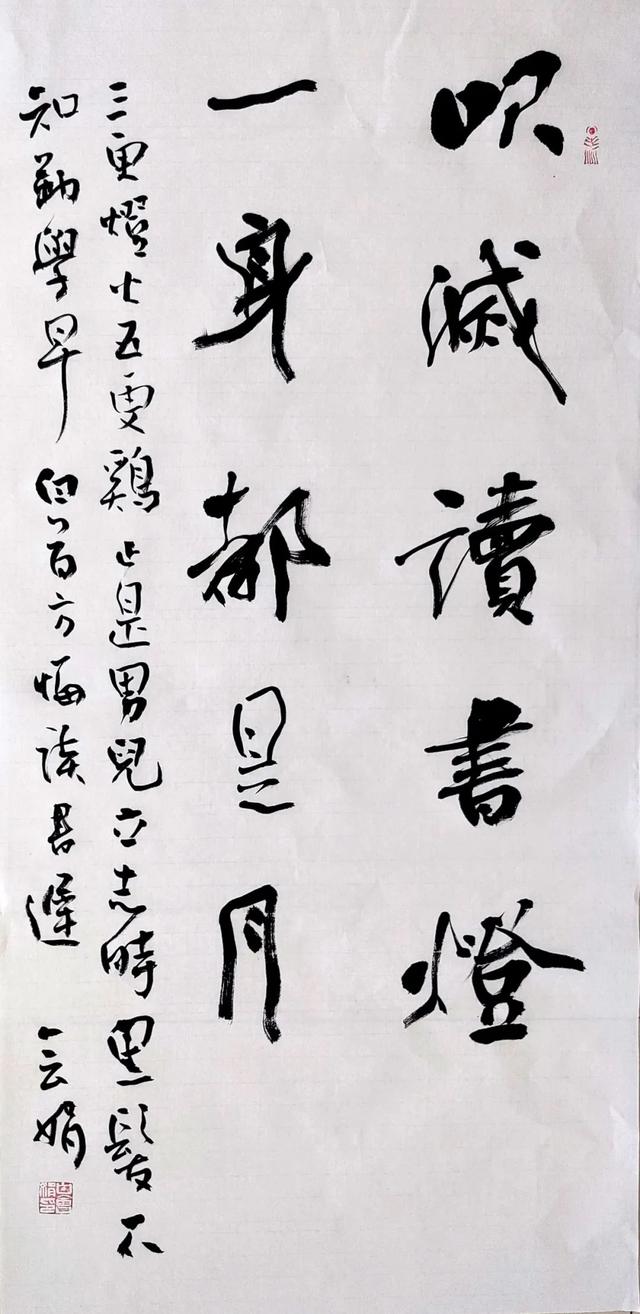 吹滅讀書燈
一身都是月
三更燈火五更鷄正是男兒立志時黑髮不
知勤學早白首方悔讀書遲 会娟